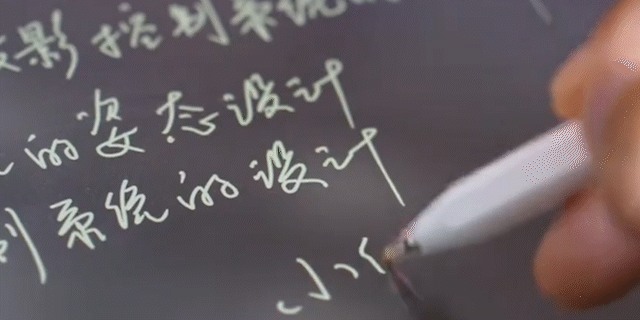 影控制系统的
的姿态设计
制系统的设计
小